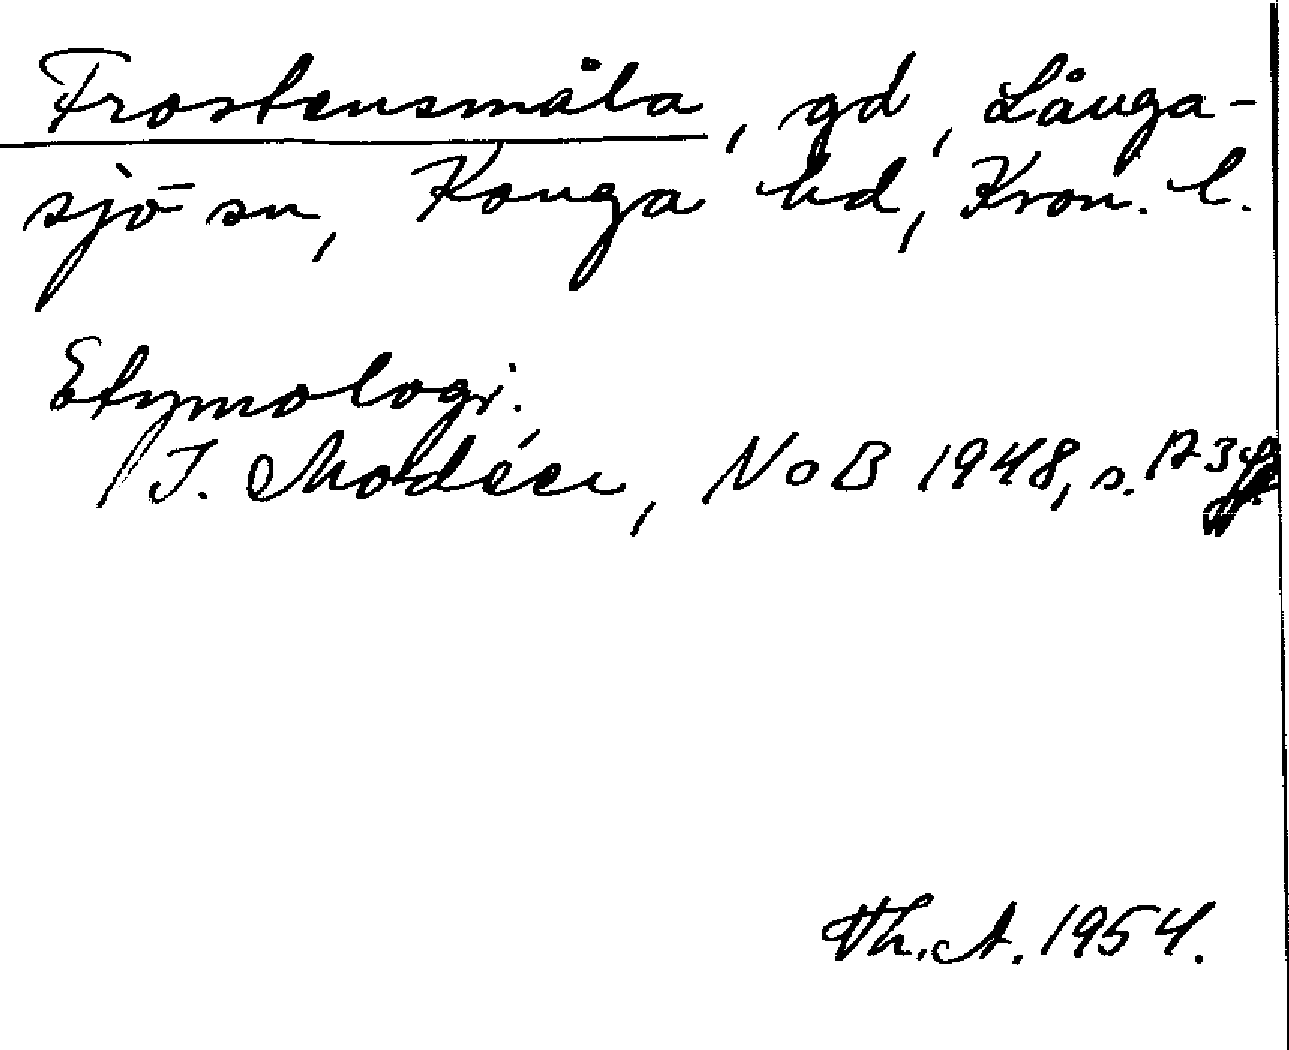 Frostensmåla, gd, Långa-
sjö sn, Konga hd, Kron. l.
Etymologi.
I. Modéer, NoB 1948, s.
Th. A. 1954.